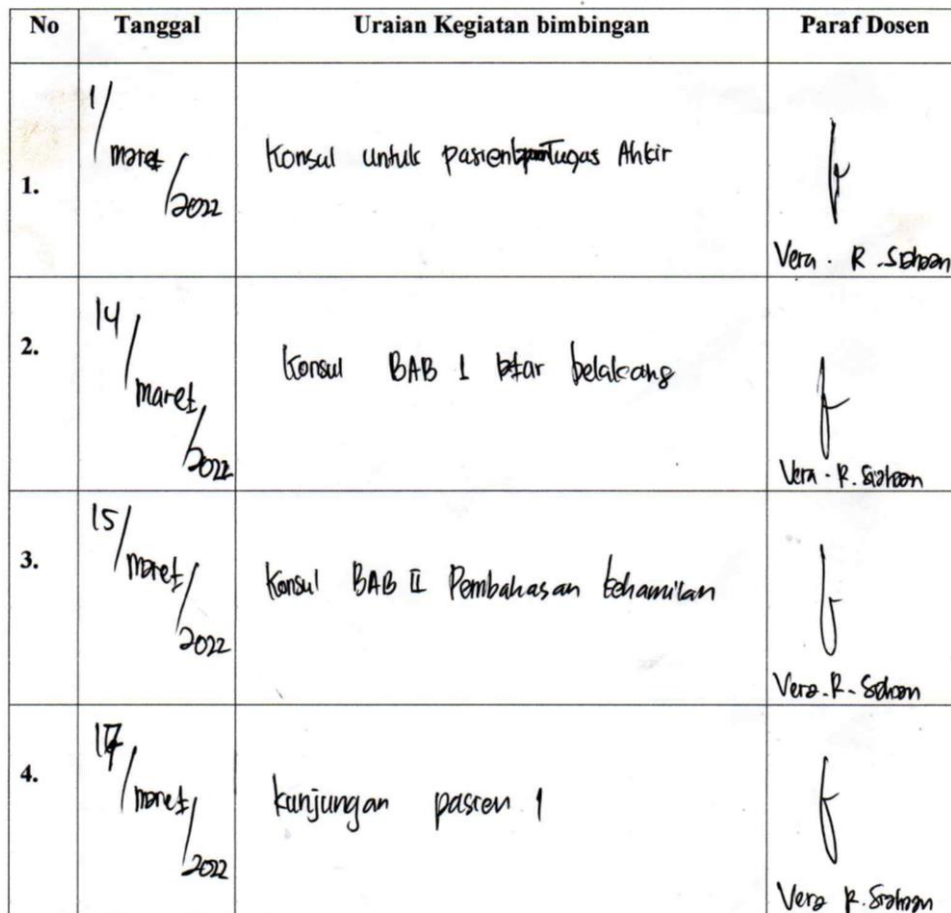 No Tanggal Uraian Kegiatan bimbingan Paraf Dosen
1. 1/maret/2022 Konsul untuk pasien Tugas Ahkir
Vera . R .
2. 14/maret/2022 Konsul BAB 1 latar belakang
Vera . R.
3. 15/maret/2022 Konsul BAB II Pembahasan kehamilan
Vera . R .
4. 17/maret/2022 kunjungan pasien 1
Vera R.